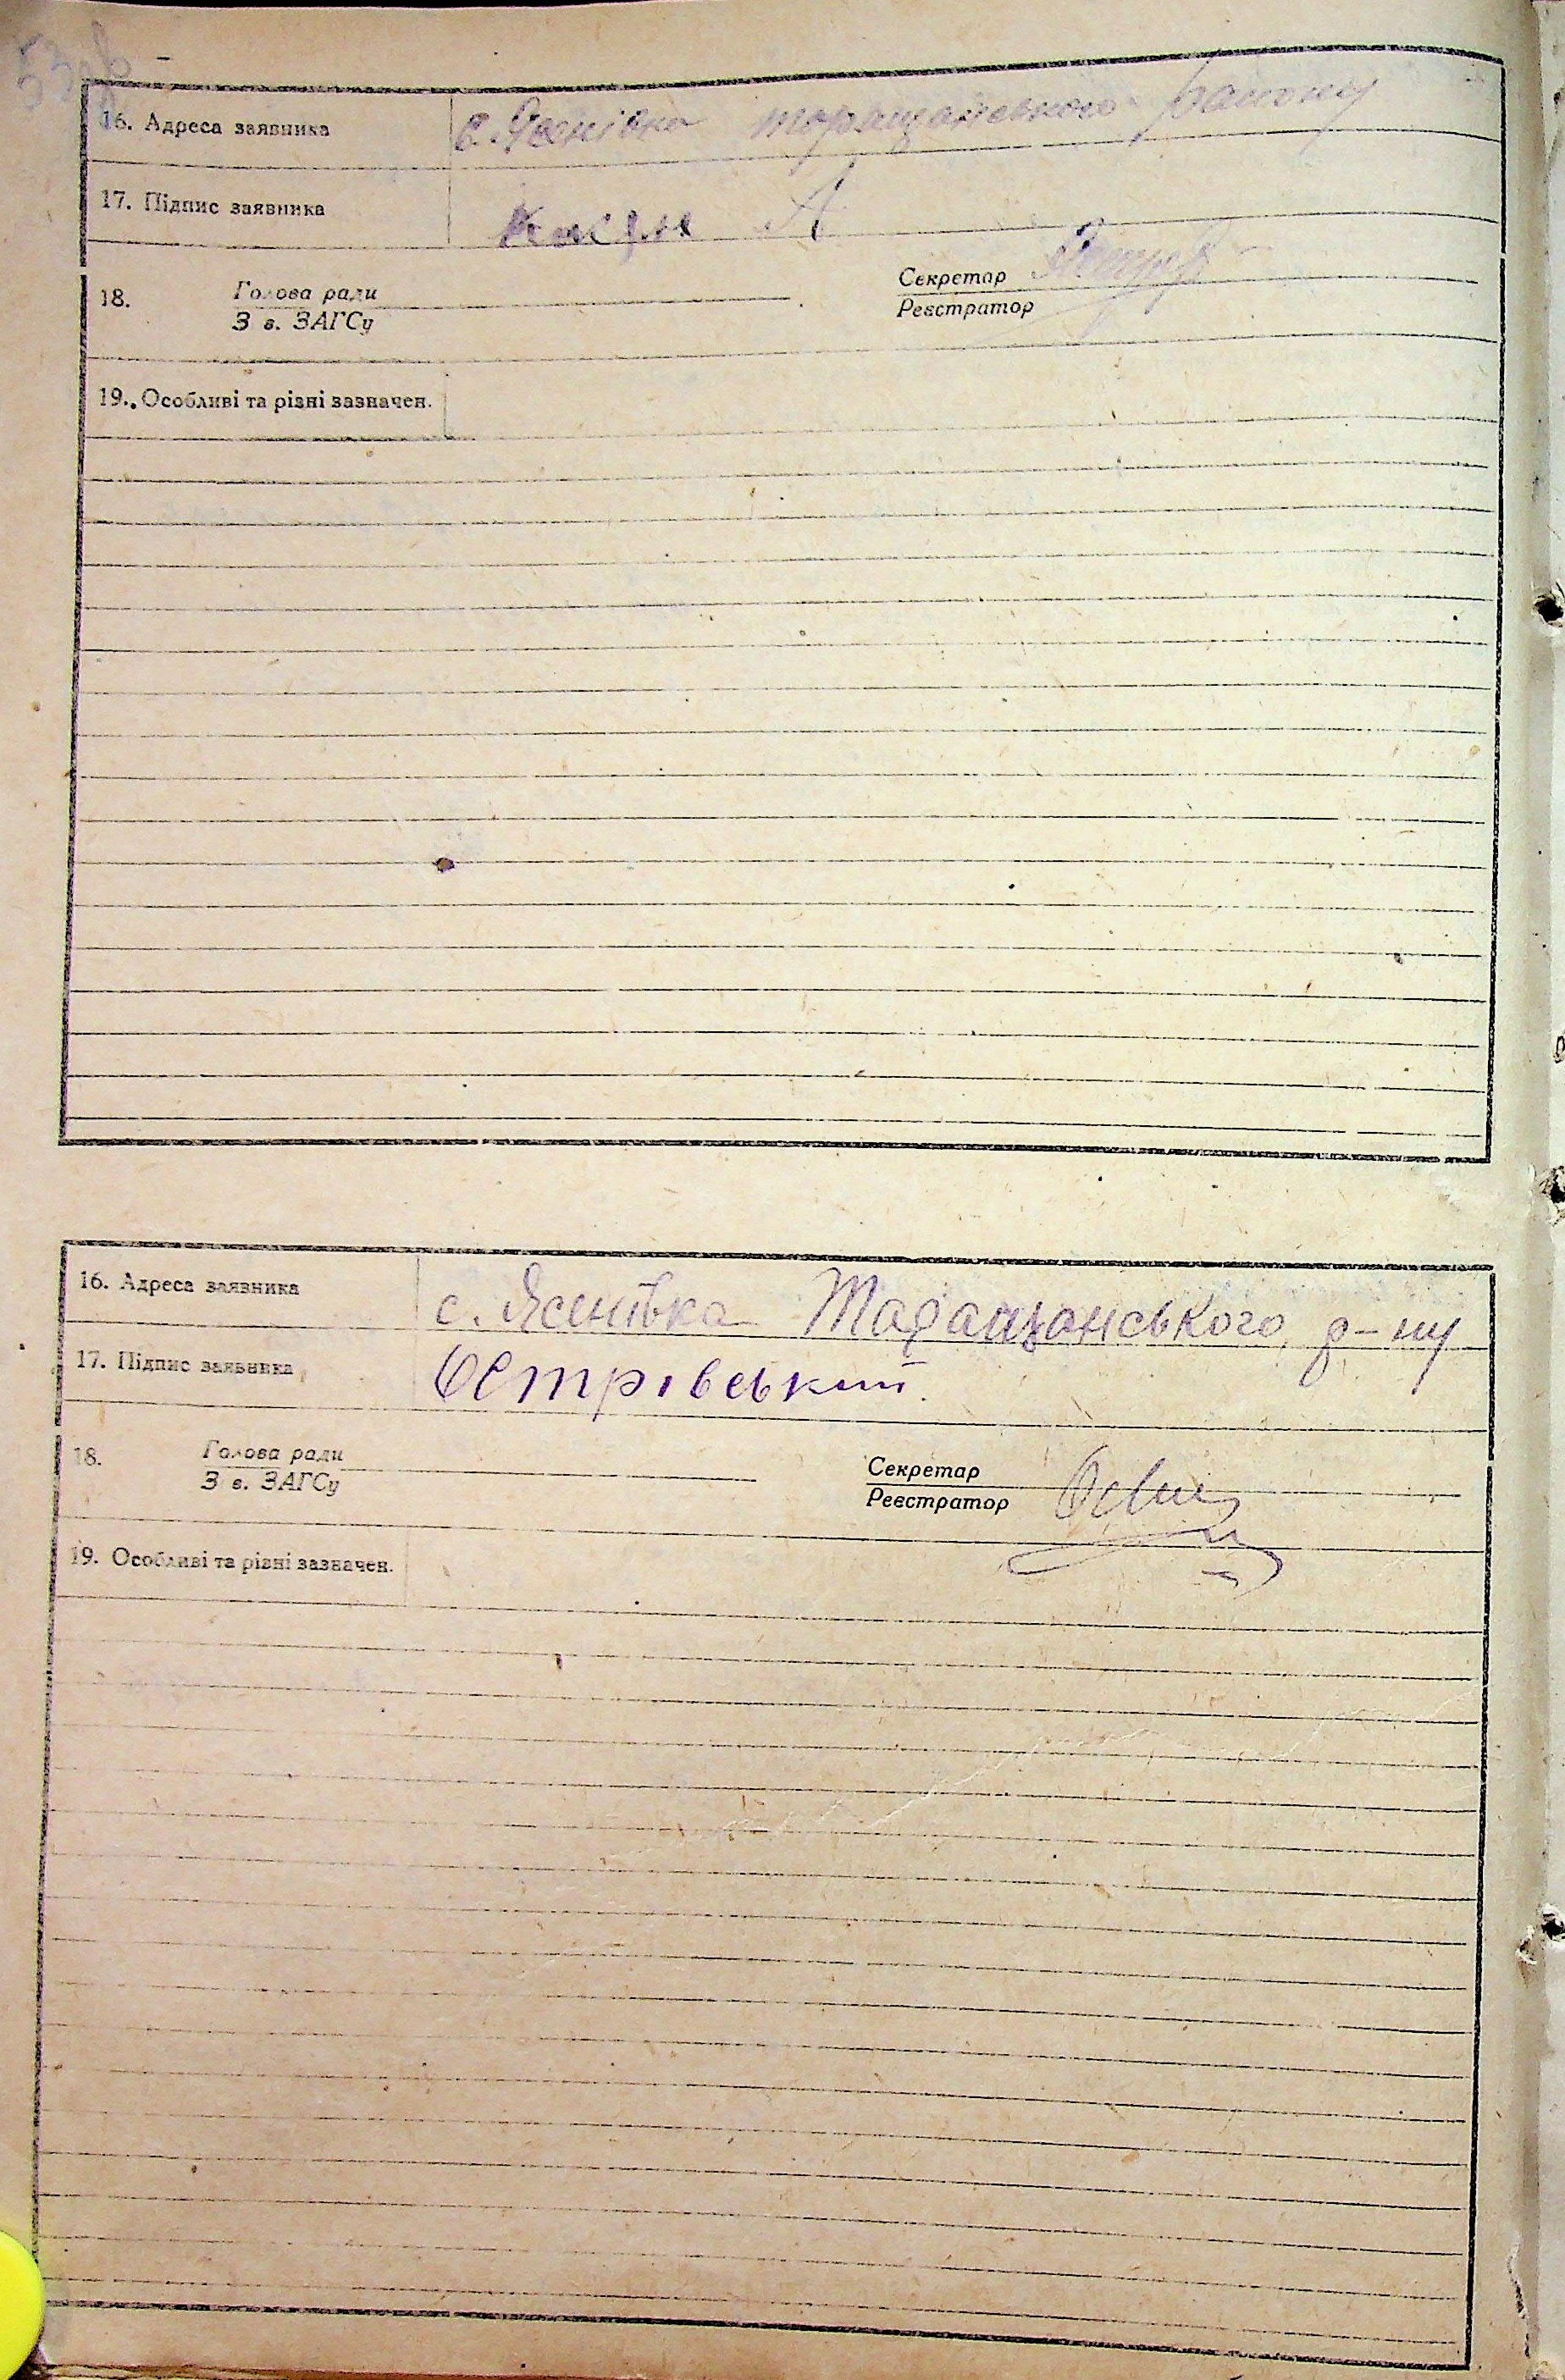 53зв
16. Адреса заявника с. Ясенівка таращанського району
17. Підпис заявника А
18. Голова ради Секретар
З в. ЗАГСу Реєстратор
19. Особливі та різні зазначен.
16. Адреса заявника с. Ясенівка Таращанського р-ну
17. Підпис заявника Острівський.
18. Голова ради Секретар
З в. ЗАГСу Реєстратор
19. Особливі та різні зазначен.